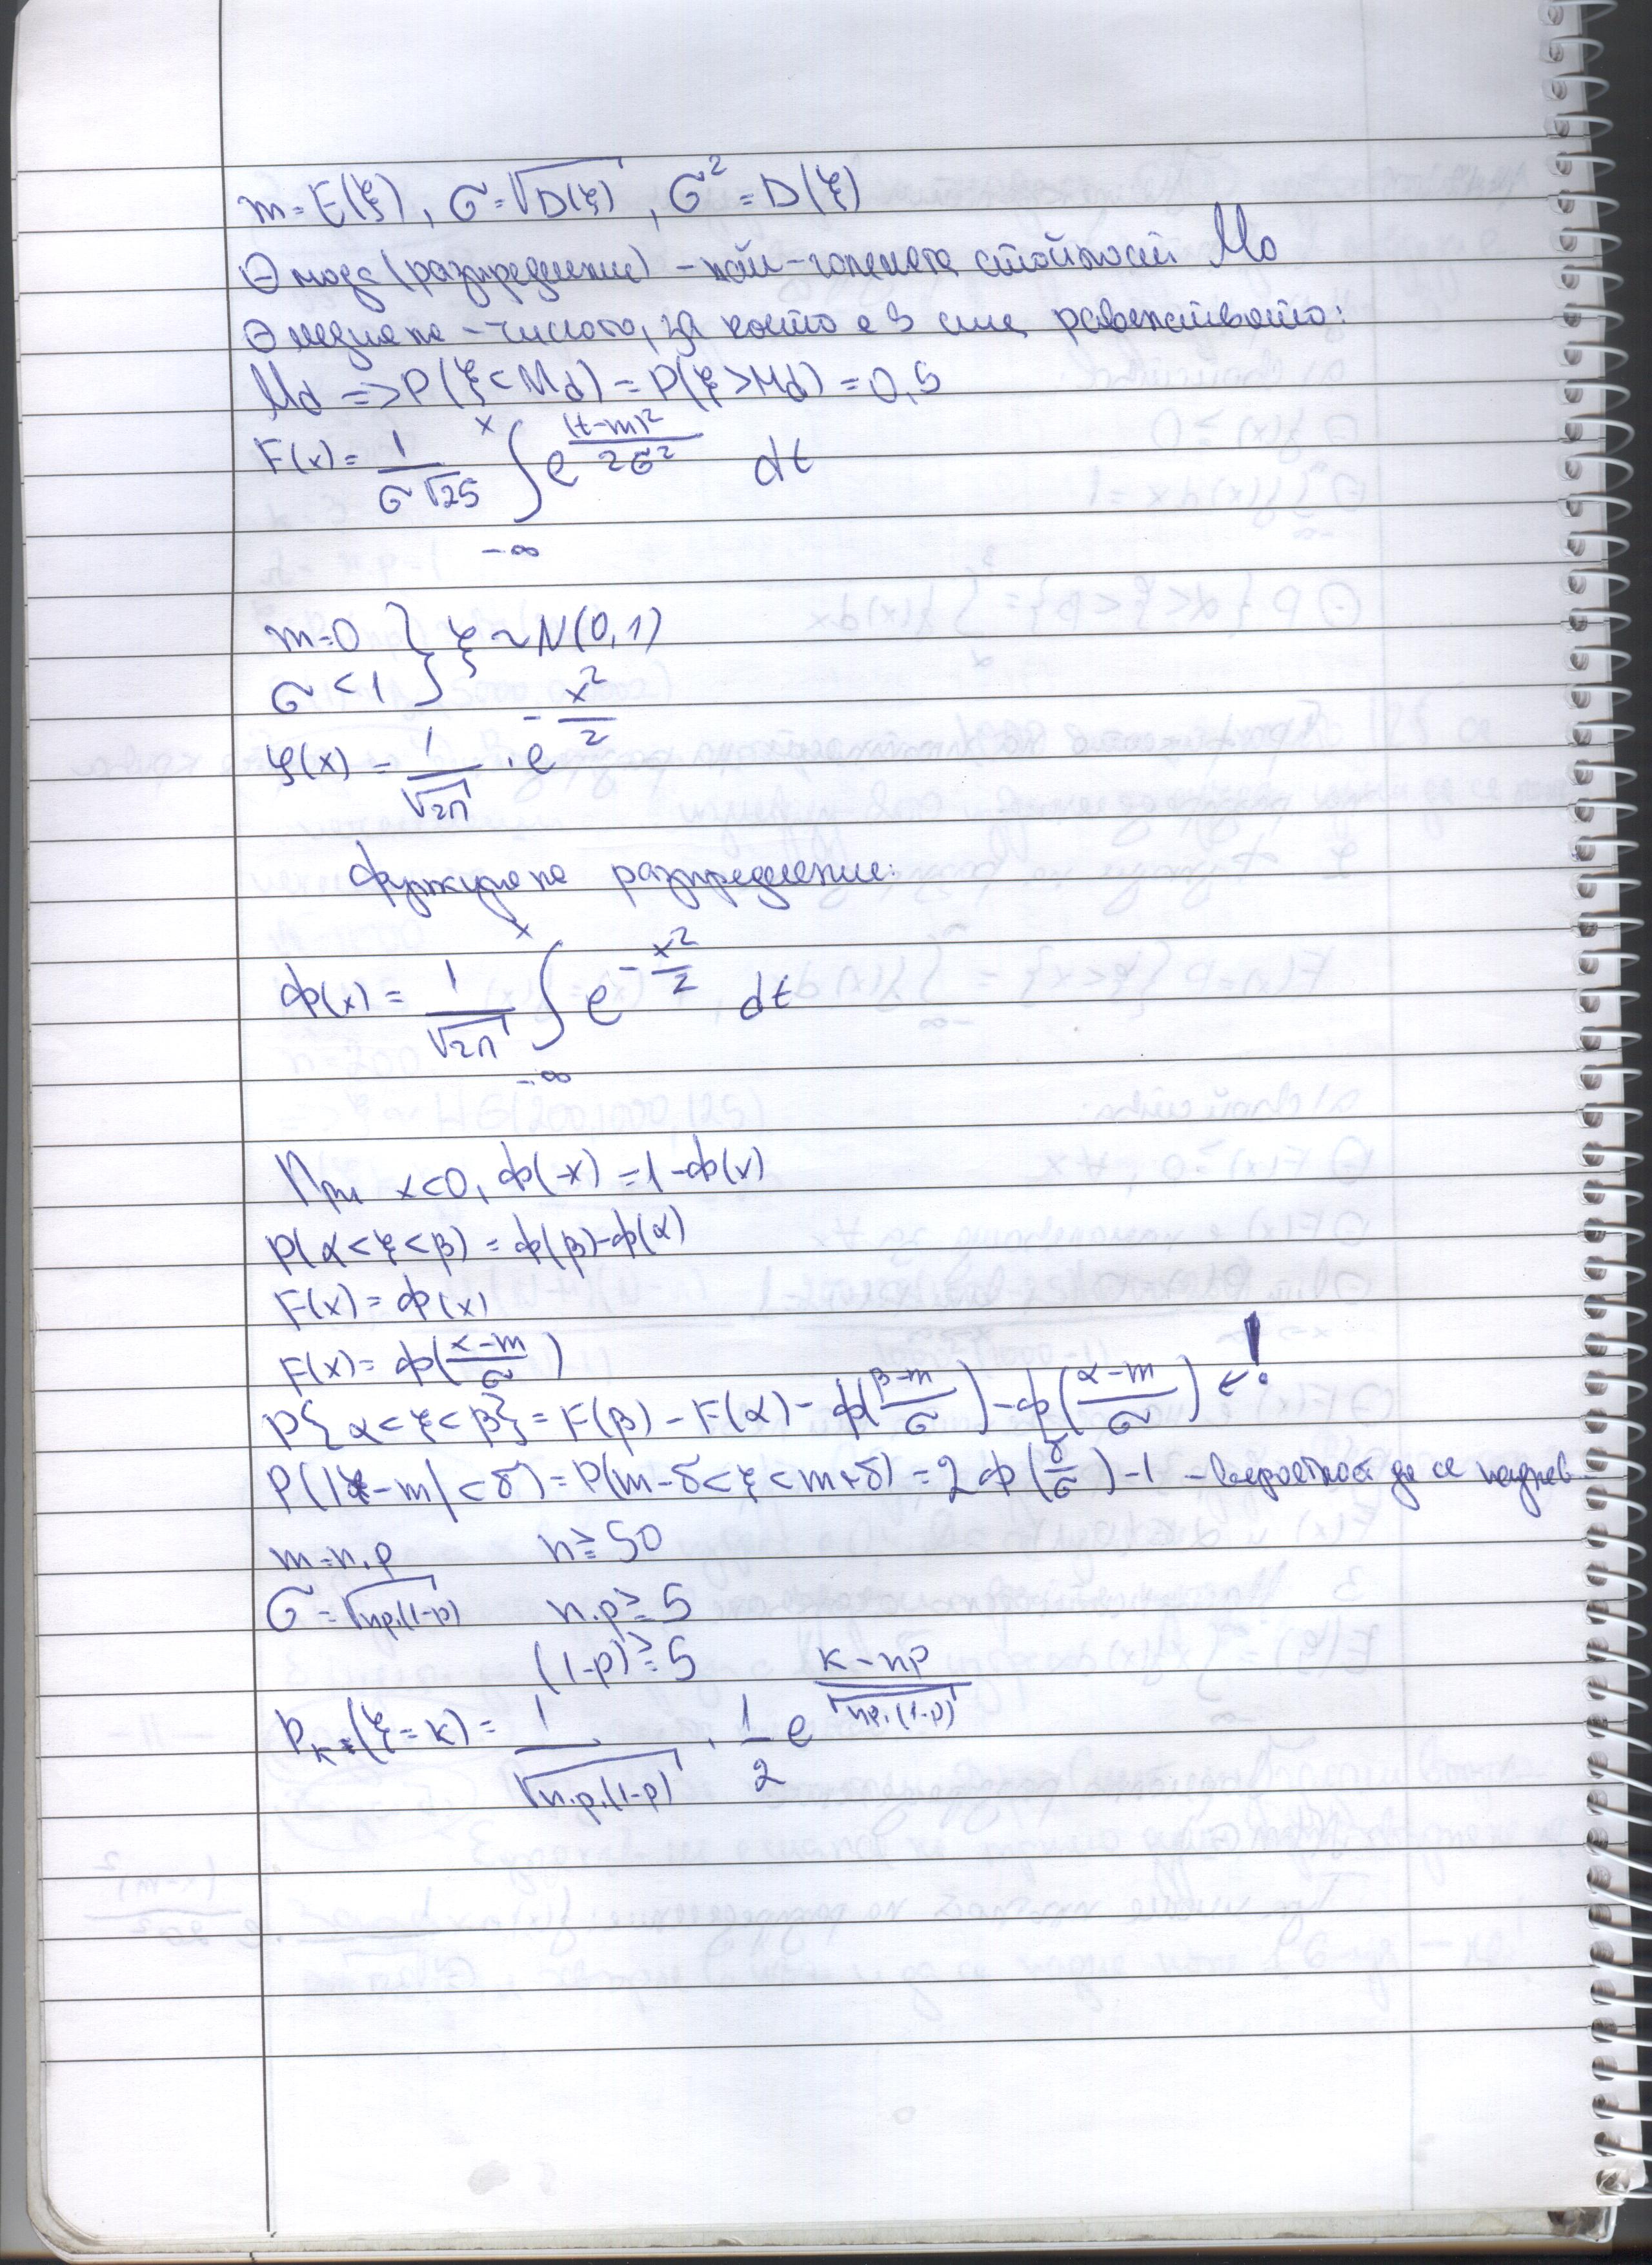 m = E(ξ), σ = √D(ξ), σ² = D(ξ)
⊖ мода (разпределение) – най-голямата стойност Mo
⊖ медиана – числото, за което е в сила равенството:
Md => P(ξ < Md) = P(ξ > Md) = 0,5
F(x) = 1/(σ√25) ∫_{-∞}^{x} e^{(t-m)²/2σ²} dt
m = 0 } ξ ~ N(0,1)
σ < 1 }
φ(x) = 1/√2π · e^{-x²/2}
функция на разпределение:
ф(x) = 1/√2π ∫_{-∞}^{x} e^{-x²/2} dt
При x < 0, ф(-x) = 1 - ф(x)
P(α < ξ < β) = ф(β) - ф(α)
F(x) = ф(x)
F(x) = ф((x-m)/σ)
P{α < ξ < β} = F(β) - F(α) - ф((β-m)/σ) - ф((α-m)/σ) ← !
P(|ξ - m| < δ) = P(m - δ < ξ < m + δ) = 2ф(δ/σ) - 1 – вероятност да се
m = n.p n ≥ 50
σ = √np.(1-p) n.p ≥ 5
(1-p) ≥ 5
P_k = (ξ = k) = 1/√n.p.(1-p) · 1/2 e^{(k-np)/√np.(1-p)}